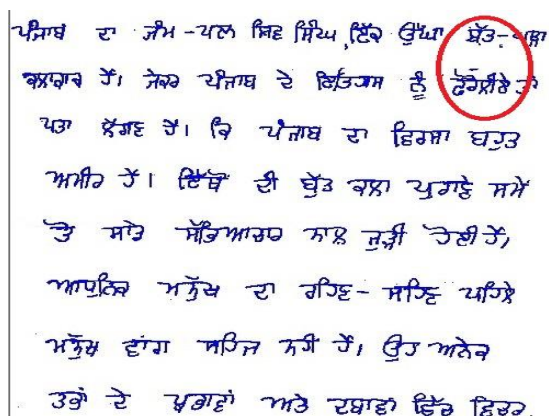 ਪੰਜਾਬ ਦਾ ਜੰਮ-ਪਲ ਸ਼ਿਵ ਸਿੰਘ, ਇੱਕ ਉੱਘਾ ਬੁੱਤ-ਕਲਾ
ਕਲਾਕਾਰ ਹੈ। ਜੇਕਰ ਪੰਜਾਬ ਦੇ ਇਤਿਹਾਸ ਨੂੰ ਫੋਰੋਲੀਏ ਤਾਂ
ਪਤਾ ਲੱਗਦਾ ਹੈ। ਕਿ ਪੰਜਾਬ ਦਾ ਵਿਰਸਾ ਬਹੁਤ
ਅਮੀਰ ਹੈ। ਇੱਥੋਂ ਦੀ ਬੁੱਤ ਕਲਾ ਪੁਰਾਣੇ ਸਮੇਂ
ਤੋਂ ਸਾਡੇ ਸੱਭਿਆਚਾਰ ਨਾਲ ਜੁੜੀ ਹੋਈ ਹੈ,
ਆਧੁਨਿਕ ਮਨੁੱਖ ਦਾ ਰਹਿਣ-ਸਹਿਣ ਪਹਿਲੇ
ਮਨੁੱਖ ਵਾਂਗ ਸਹਿਜ ਨਹੀਂ ਹੈ। ਉਹ ਅਨੇਕ
ਤਰਾਂ ਦੇ ਪ੍ਰਭਾਵਾਂ ਅਤੇ ਦਬਾਵਾਂ ਵਿੱਚ ਵਿਚਰ